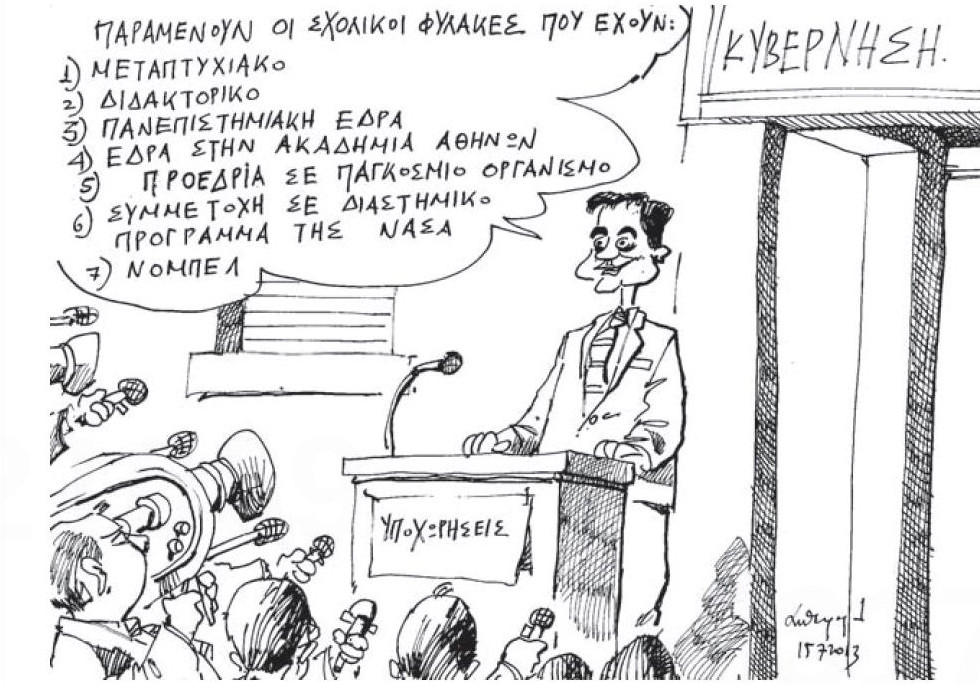 ΠΑΡΑΜΕΝΟΥΝ ΟΙ ΣΧΟΛΙΚΟΙ ΦΥΛΑΚΕΣ ΠΟΥ ΕΧΟΥΝ:
1) ΜΕΤΑΠΤΥΧΙΑΚΟ
2) ΔΙΔΑΚΤΟΡΙΚΟ
3) ΠΑΝΕΠΙΣΤΗΜΙΑΚΗ ΕΔΡΑ
4) ΕΔΡΑ ΣΤΗΝ ΑΚΑΔΗΜΙΑ ΑΘΗΝΩΝ
5) ΠΡΟΕΔΡΙΑ ΣΕ ΠΑΓΚΟΣΜΙΟ ΟΡΓΑΝΙΣΜΟ
6) ΣΥΜΜΕΤΟΧΗ ΣΕ ΔΙΑΣΤΗΜΙΚΟ
ΠΡΟΓΡΑΜΜΑ ΤΗΣ ΝΑΣΑ
7) ΝΟΜΠΕΛ
ΚΥΒΕΡΝΗΣΗ.
ΥΠΟΧΩΡΗΣΕΙΣ
15 7 2013